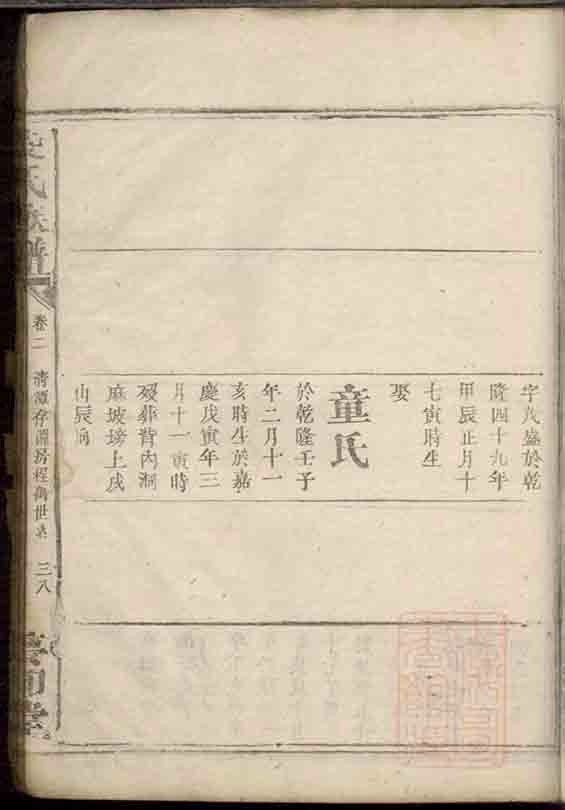 字茂盛於乾
隆四十九年
甲辰正月十
七寅時生
娶
童氏
於乾隆壬子
年二月十一
亥時生於嘉
慶戊寅年三
月十一寅時
歿葬背內洞
麻坡塝上戌
山辰向
氏族譜
卷二
清潭存源房程衡世系
三八
堂